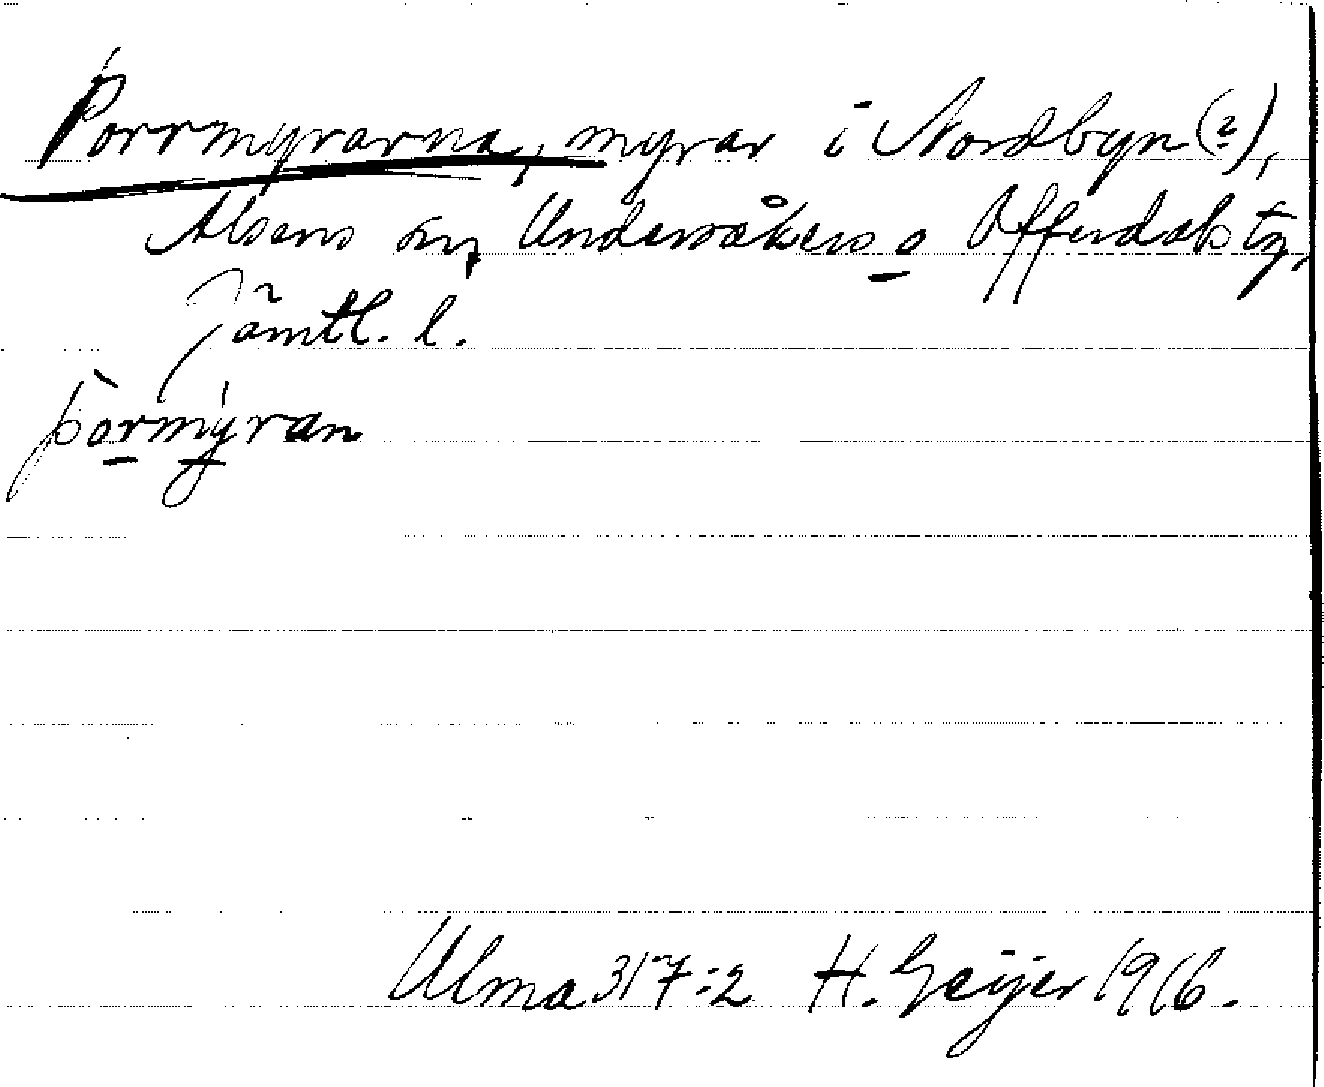 Porrmyrarna, myrar i Nordbyn(?),
Alsens sn, Undersåkers o Offerdals tg,
Jämtl. l.
pòrmýran
Ulma 317:2 H. Geijer 1916.